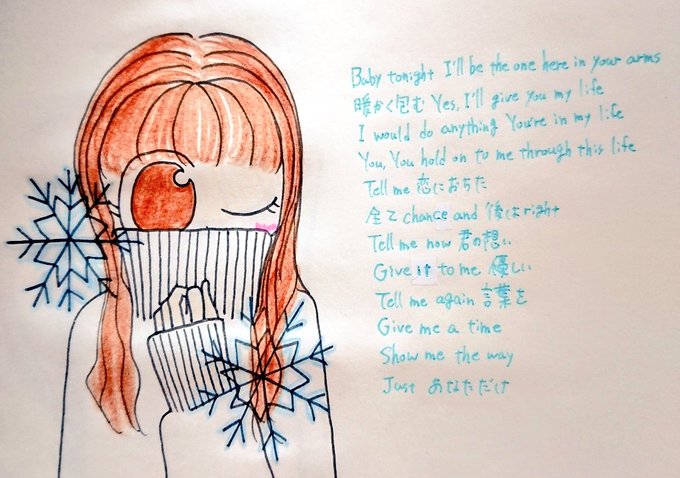 Baby tonight I'll be the one here in your arms
暖かく包む Yes, I'll give you my life
I would do anything You're in my life
You, You hold on to me through this life
Tell me 恋におちた
全て chance and 後は right
Tell me now 君の想い
Give it to me 優しい
Tell me again 言葉を
Give me a time
Show me the way
Just あなただけ